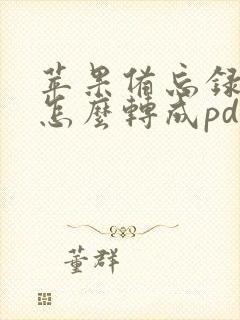 苹果備忘録
怎麼轉成pd
董群